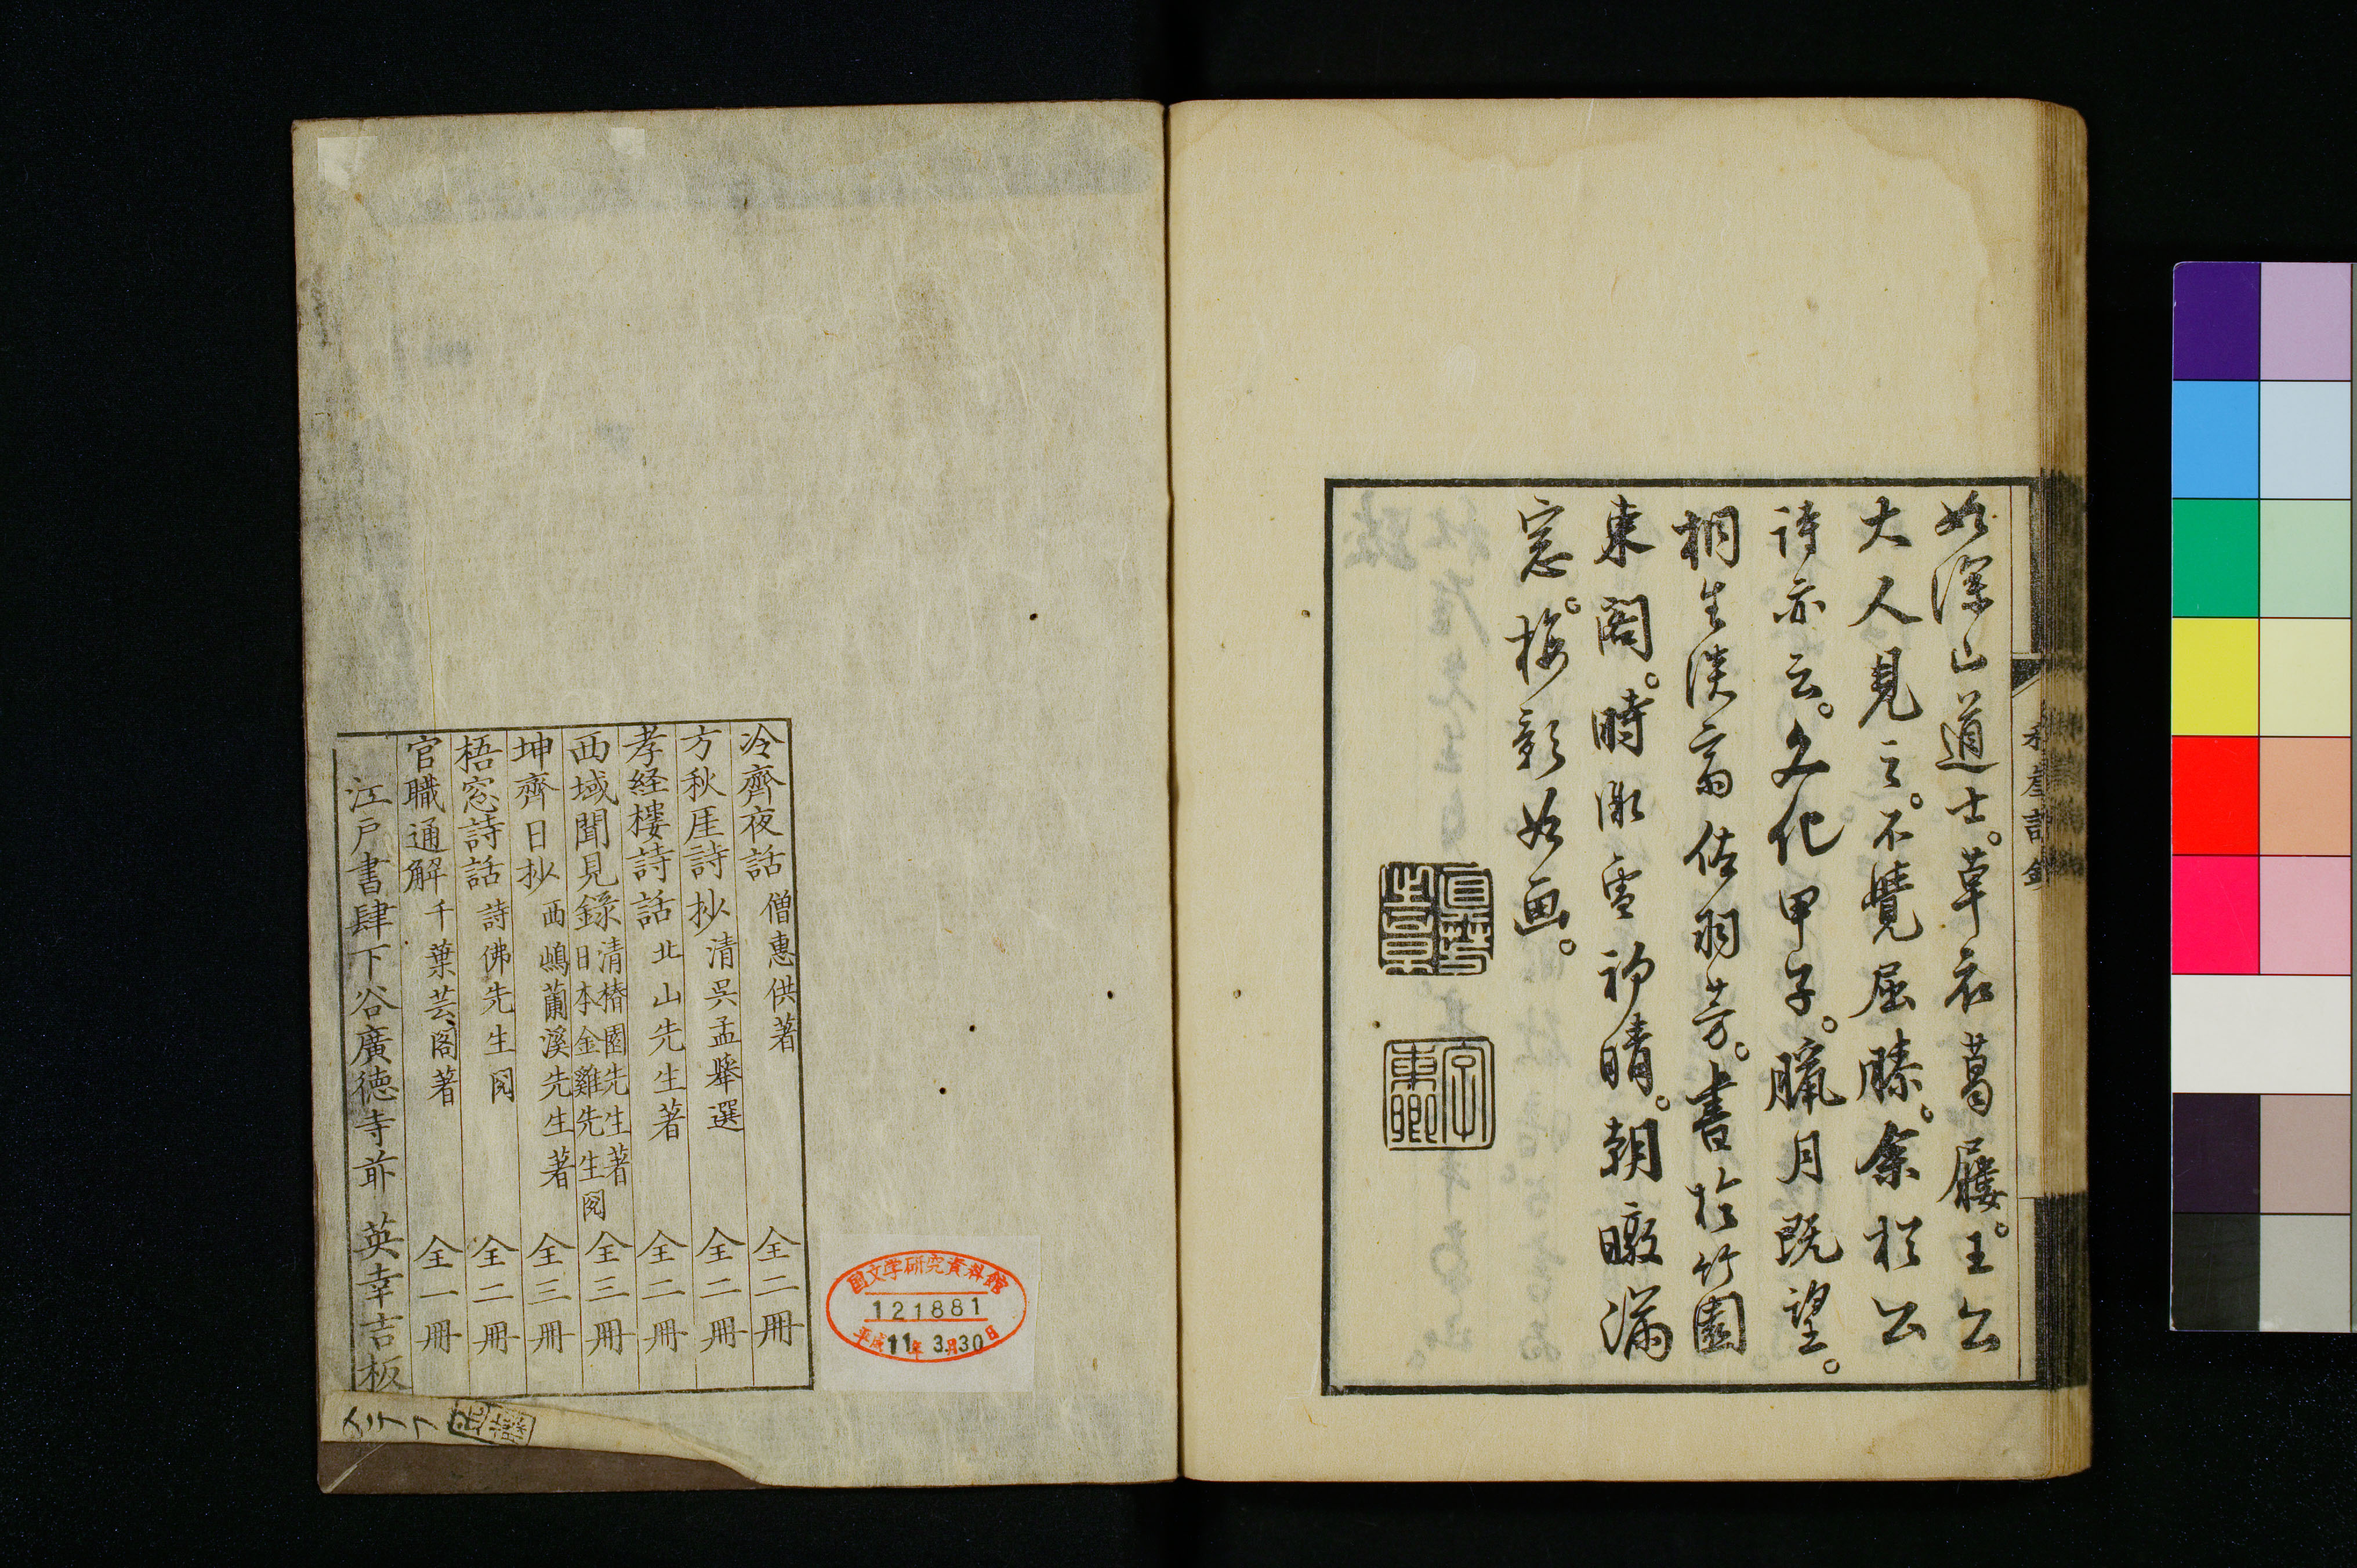 如深山道士。草衣葛屨。王公
大人見之。不覺屈膝。余於公
詩亦云。文化甲子。臘月既望。
桐生淡齋佐羽芳。書於竹園
東閣。時微雪初晴。朝暾滿
窓。梅影如画。
冷齊夜話 僧惠供著 全二冊
方秋厓詩抄 清呉孟擧選 全二冊
孝経樓詩話 北山先生著 全二冊
西域聞見錄 清椿園先生著 日本金雞先生閲 全三冊
坤齊日抄 西嶋蘭溪先生著 全三冊
梧窓詩話 詩佛先生閲 全二冊
官職通解 千葉芸閣著 全一冊
江戸書肆下谷廣徳寺前 英幸吉板
国文学研究資料館
121881
平成11年3月30日